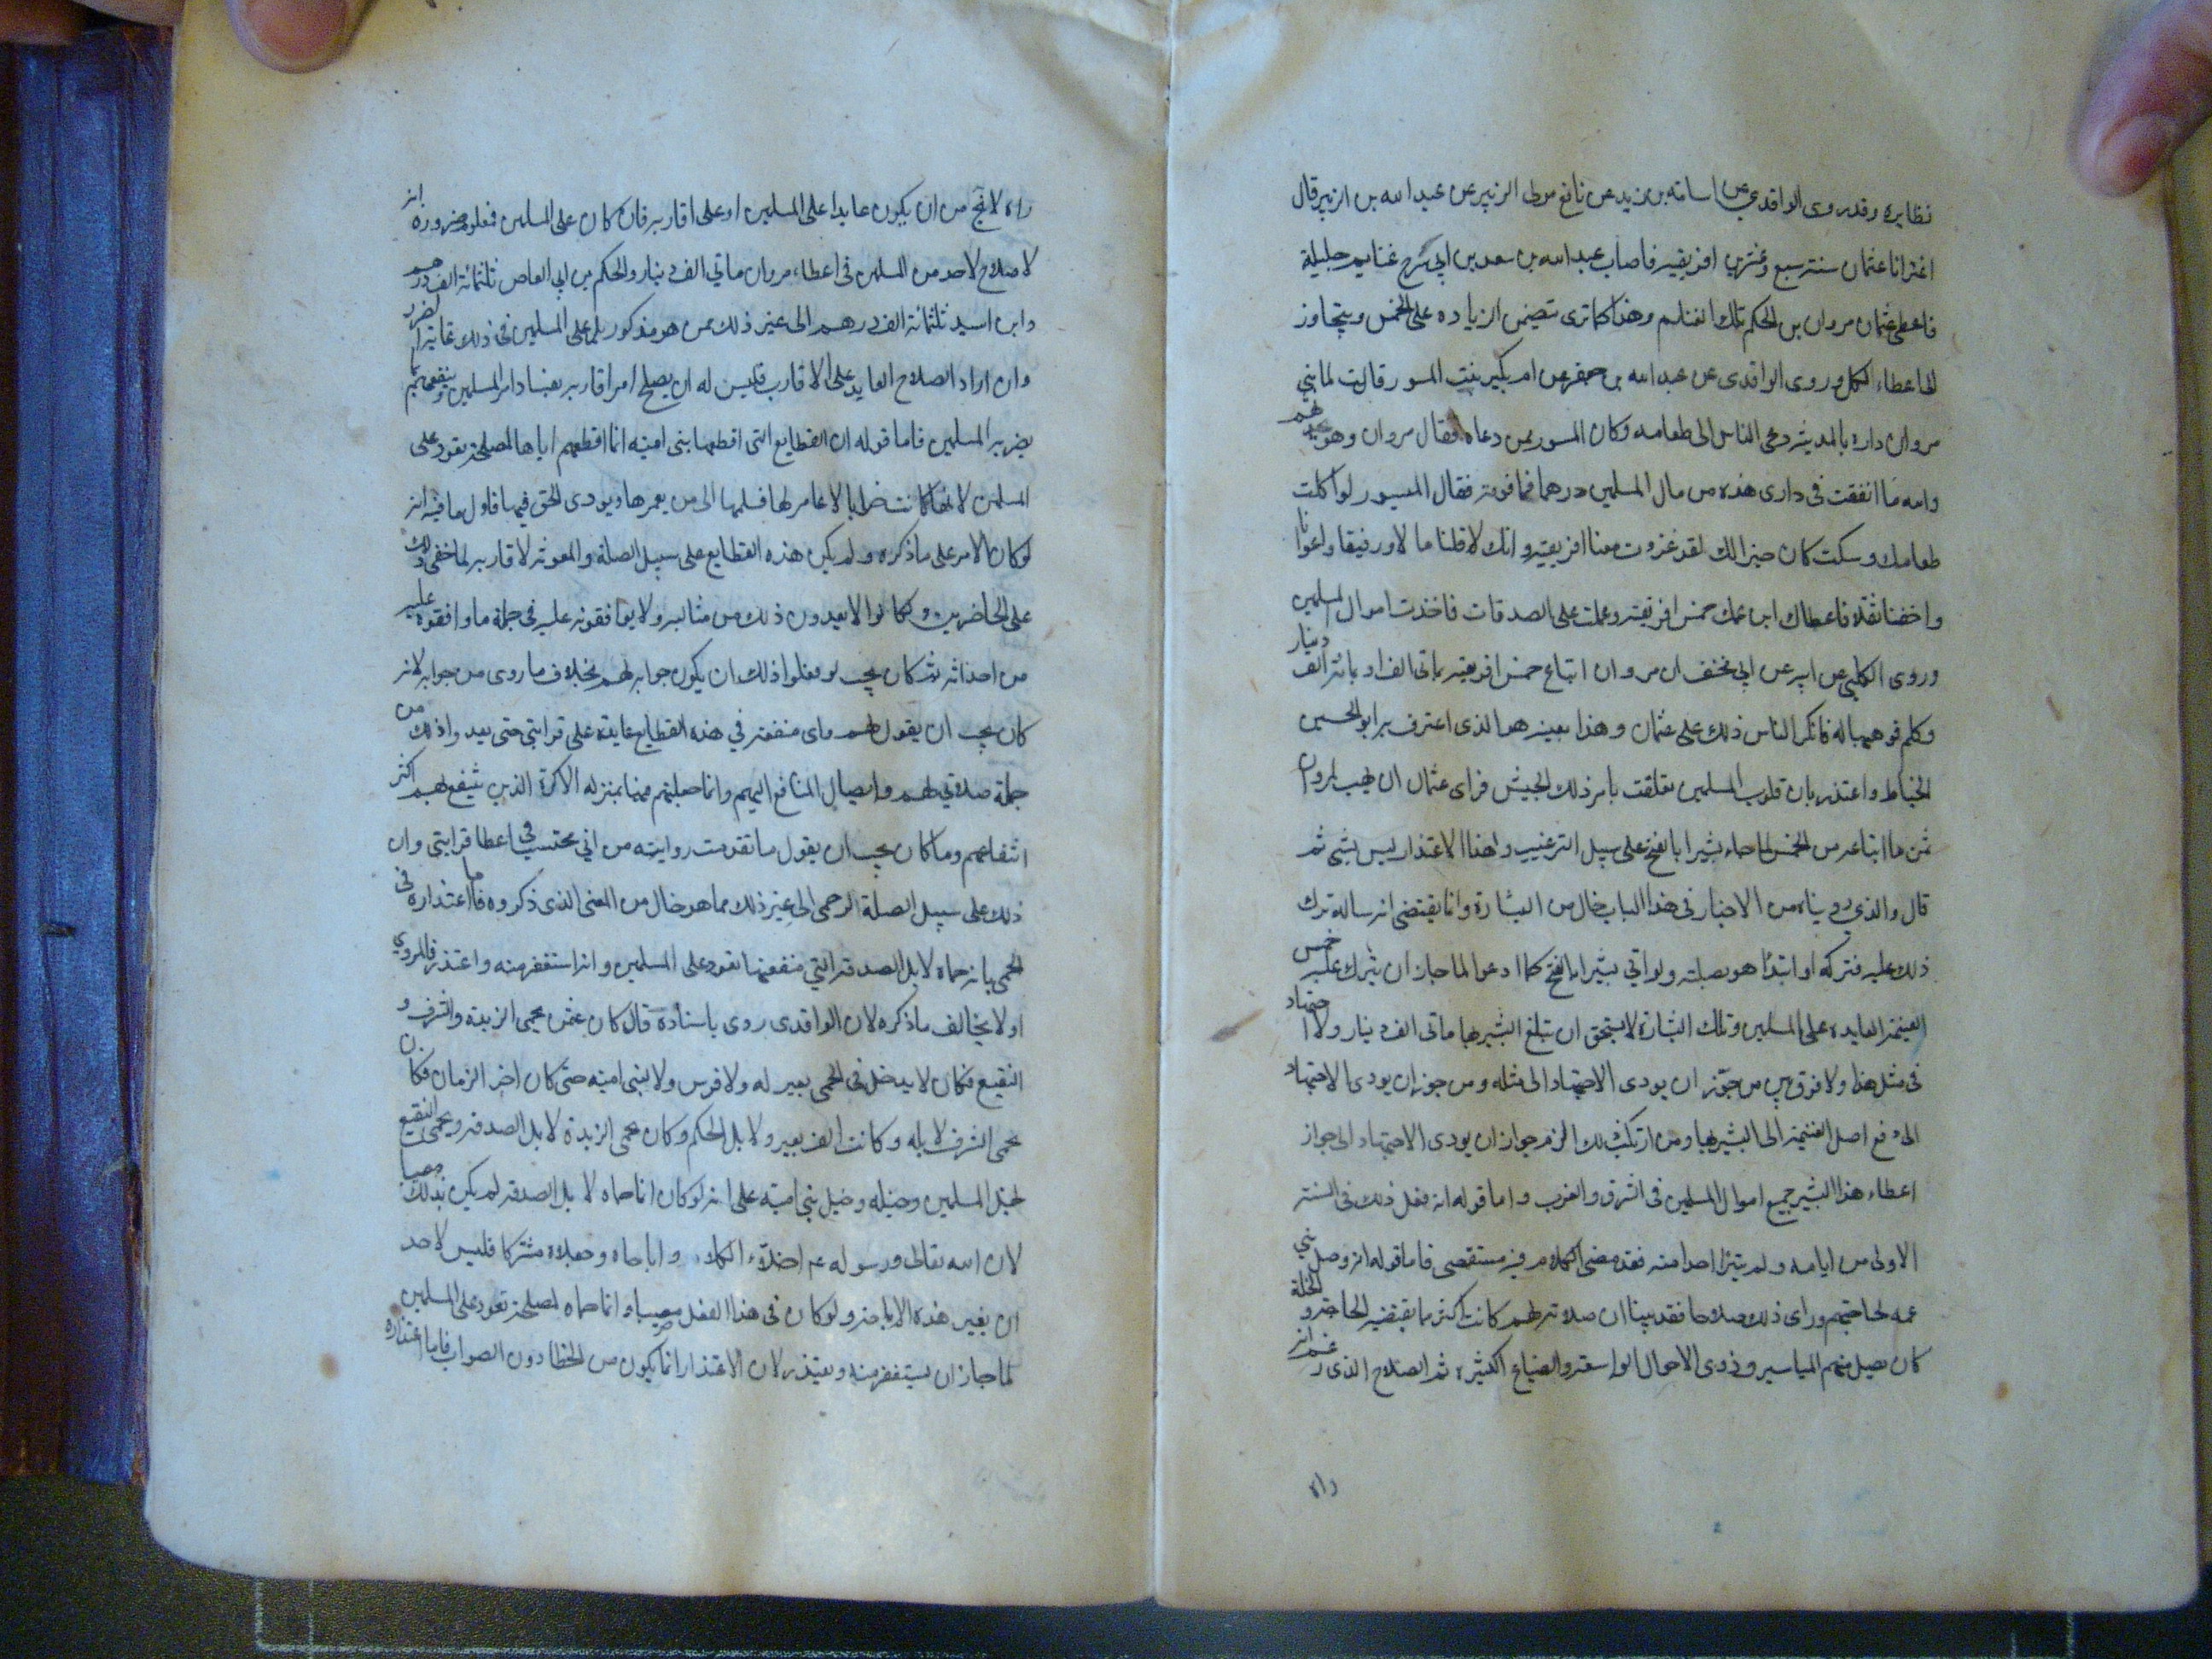 نظايره وقد روى الواقدي عن اسامة بن زيد عن نافع مولى الزبير عن عبد الله بن الزبير قال
اغزانا عثمان سنة سبع وعشرين افريقية فاصاب عبد الله بن سعد بن ابي سرح غنايم جليلة
فاعطى عثمان مروان بن الحكم تلك الغنايم وهذا كما ترى يتضمن الزيادة على الخمس ويتجاوز
الى اعطاء الكل وروى الواقدى عن عبد الله بن جعفر عن ام بكير بنت المسور قالت لما بنى
مروان داره بالمدينة دعى الناس الى طعامه وكان المسور ممن دعاه فقال مروان وهو يحدثهم
والله ما انفقت فى دارى هذه من مال المسلمين درهما فما فوقه فقال المسور لو اكلت
طعامك وسكت كان خيرا لك لقد غزوت معنا افريقية وانك لاقلنا مالا ورفيقا واعوانا
واخفنا ثقلا فاعطاك ابن عمك خمس افريقية وعملت على الصدقات فاخذت اموال المسلمين
وروى الكلبي عن ابيه عن ابي مخنف ان مروان ابتاع خمس افريقية بماتى الف او بمائة الف دينار
وكلم فوهبها له فانكر الناس ذلك على عثمان وهذا بعينه هو الذى اعترف به ابو الحسين
الخياط واعتذر بان قلوب المسلمين تعلقت بامر ذلك الجيش فراى عثمان ان يهب لمروان
ثمن ما ابتاعه من الخمس لما جاء بشيرا بالفتح على سبيل الترغيب وهذا الاعتذار ليس بشى ثم
قال والذي رويناه من الاخبار فى هذا الباب خال من البشارة وانما يقتضى انه ساله ترك
ذلك عليه فتركه او ابتدا هو بصلته ولو اتي بشيرا بالفتح كما ادعوا لما جاز ان يترك عليه خمس
الغنيمة العايدة على المسلمين وتلك البشارة لا يستحق ان تبلغ البشير بها ماتى الف دينار ولا اجتهاد
فى مثل هذا ولا فرق بين من جوز ان يودى الاجتهاد الى مثله ومن جوز ان يودى الاجتهاد
الى دفع اصل الغنيمة الى البشير بها ومن ارتكب ذلك الزم جواز ان يودى الاجتهاد الى جواز
اعطاء هذا البشير جميع اموال المسلمين فى الشرق والغرب واما قوله انه فعل ذلك فى السنة
الاولى من ايامه ولم يتبرا احد منه فقد مضى الكلام فيه مستقصى فاما قوله انه وصل بني
عمه لحاجتهم وراى ذلك صلاحا فقد بينا ان صلاته لهم كانت اكثر مما يقتضيه الحاجة والخلة
كان يصل منهم المياسير وذوى الاحوال الواسعة والضياع الكثيرة ثم الصلاح الذى زعم انه
راه
راه لا يخ من ان يكون عايدا على المسلمين او على اقاربه فان كان على المسلمين فمعلوم ضرورة انه
لا صلاح لاحد من المسلمين فى اعطاء مروان ماتي الف دينار والحكم بن ابي العاص ثلثمائة الف درهم
وابن اسيد ثلثمائة الف درهم الى غير ذلك ممن هو مذكور بل على المسلمين فى ذلك غاية الضرر
وان اراد الصلاح العايد على الاقارب فليس له ان يصلح امر اقاربه بفساد امر المسلمين وينفعهم بما
يضر به المسلمين فاما قوله ان القطايع التى اقطعها بنى امية انما اقطعهم اياها لمصلحة تعود على
المسلمين لانها كانت خرابا لا عامر لها فسلمها الى من يعمرها ويودى الحق فيها فاول ما فيه انه
لو كان الامر على ما ذكره ولم يكن هذه القطايع على سبيل الصلة والمعونة لاقاربه لما خفى ذلك
على الحاضرين ولكانوا لا يعدون ذلك من مثالبه ولا يواقفونه عليه فى جملة ما واقفوه عليه
من احداثه ثم كان يجب لو فعلوا ذلك ان يكون جوابه لهم بخلاف ما روى من جوابه لانه
كان يجب ان يقول لهم واى منفعة في هذه القطايع عايدة على قرابتي حتى يعد واذلك من
جملة صلاتي لهم وايصالى المنافع اليهم وانما جعلتهم فيها بمنزلة الاكرة الذين ينتفع بهم اكثر
انتفاعهم وما كان يجب ان يقول ما تقدمت روايته من اني محتسب في اعطا قرابتي وان
ذلك على سبيل الصلة الرحمى الى غير ذلك مما هو خال من المعنى الذى ذكروه فاما اعتذاره فى
الحمى بانه حماه لابل الصدقة التي منفعتها تعود على المسلمين وانه استغفر منه واعتذر فالمروي
اولا يخالف ما ذكره لان الواقدى روى باسناده قال كان عثمن يحمى الربذة والشرف و
النقيع فكان لا يدخل فى الحمى بعير له ولا فرس ولا لبنى امية حتى كان اخر الزمان فكان
يحمى الشرف لابله وكانت الف بعير ولابل الحكم وكان يحمى الربذة لابل الصدقة ويحمى النقيع
لخيل المسلمين وخيله وخيل بني امية على انه لو كان انما حماه لابل الصدقة لم يكن بذلك مصيبا
لان الله تعالى ورسوله عم احلا الكلاء واباحاه وجعلاه مشتركا فليس لاحد
ان يغير هذه الاباحة ولو كان فى هذا الفعل مصيبا وانه انما حماه لمصلحة تعود على المسلمين
لما جاز ان يستغفر منه ويعتذر لان الاعتذار انما يكون من الخطا دون الصواب فاما اعتذاره